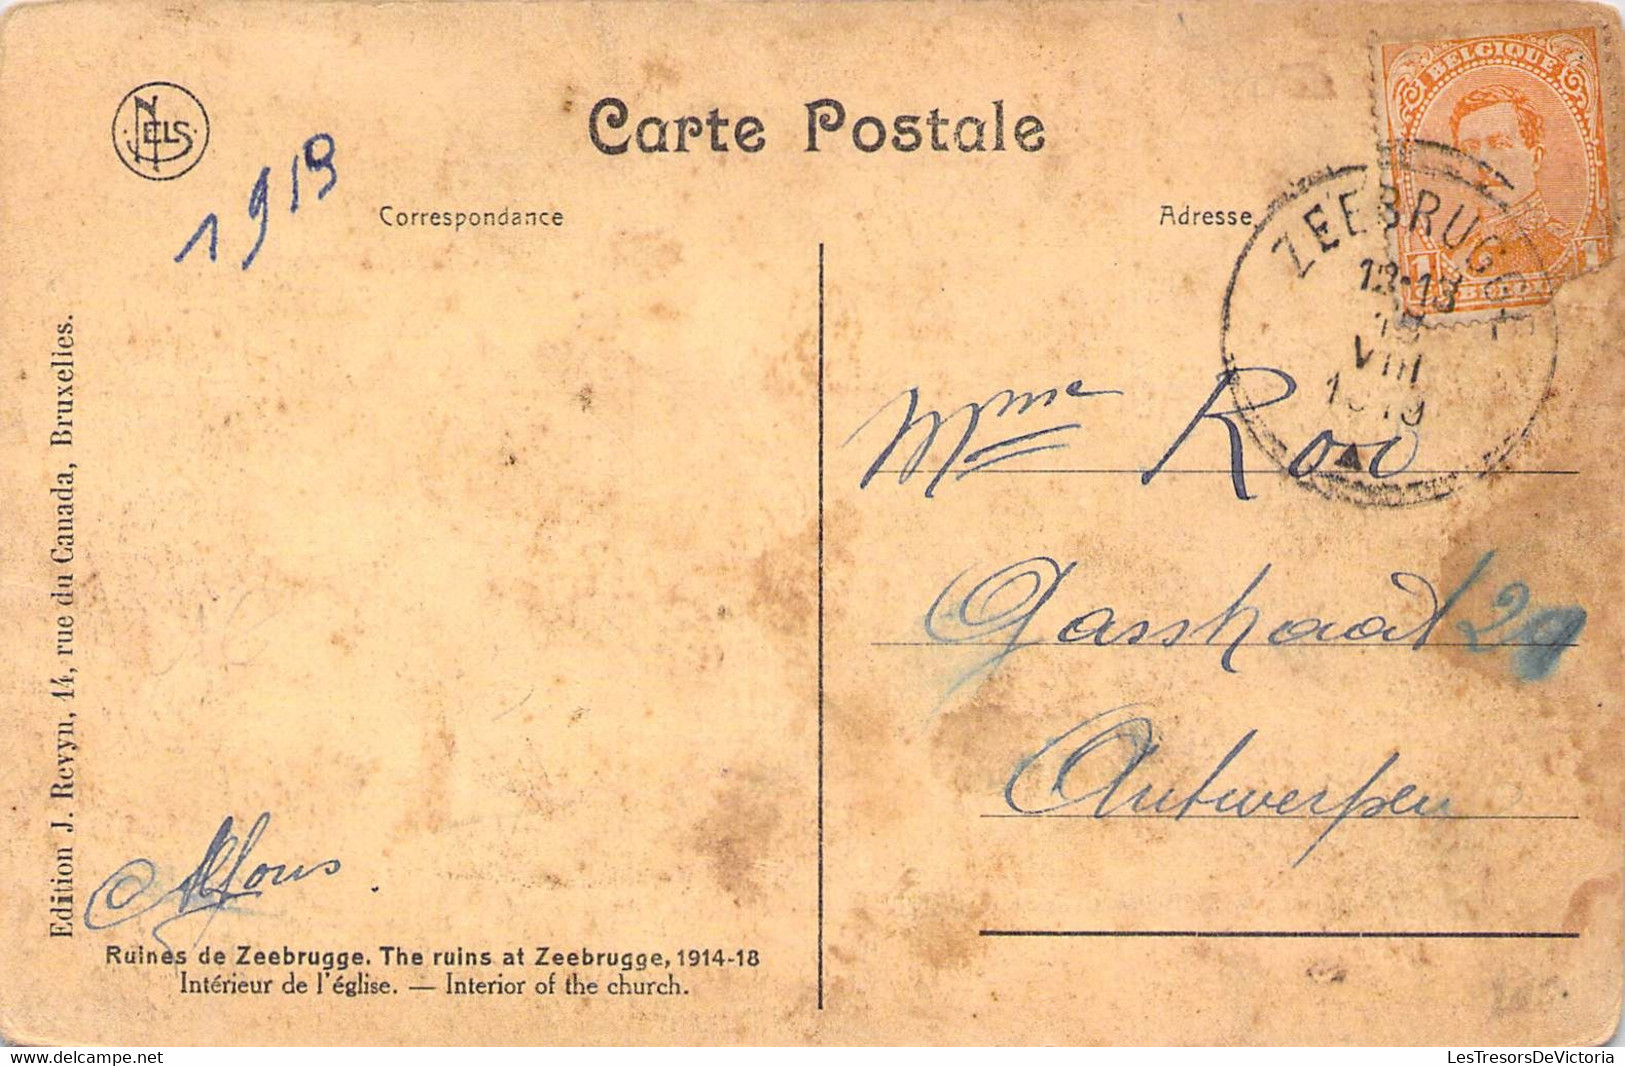 NELS
Carte Postale
1919
Correspondance
Adresse
BELGIQUE
1
1
ZEEBRUGGE
12-13
VIII
1919
Mme Roo
Gasshaat 29
Antwerpen
Alfons.
Edition J. Revyn, 14, rue du Canada, Bruxelles.
Ruines de Zeebrugge. The ruins at Zeebrugge, 1914-18
Intérieur de l'église. — Interior of the church.
LesTresorsDeVictoria
delcampe.net